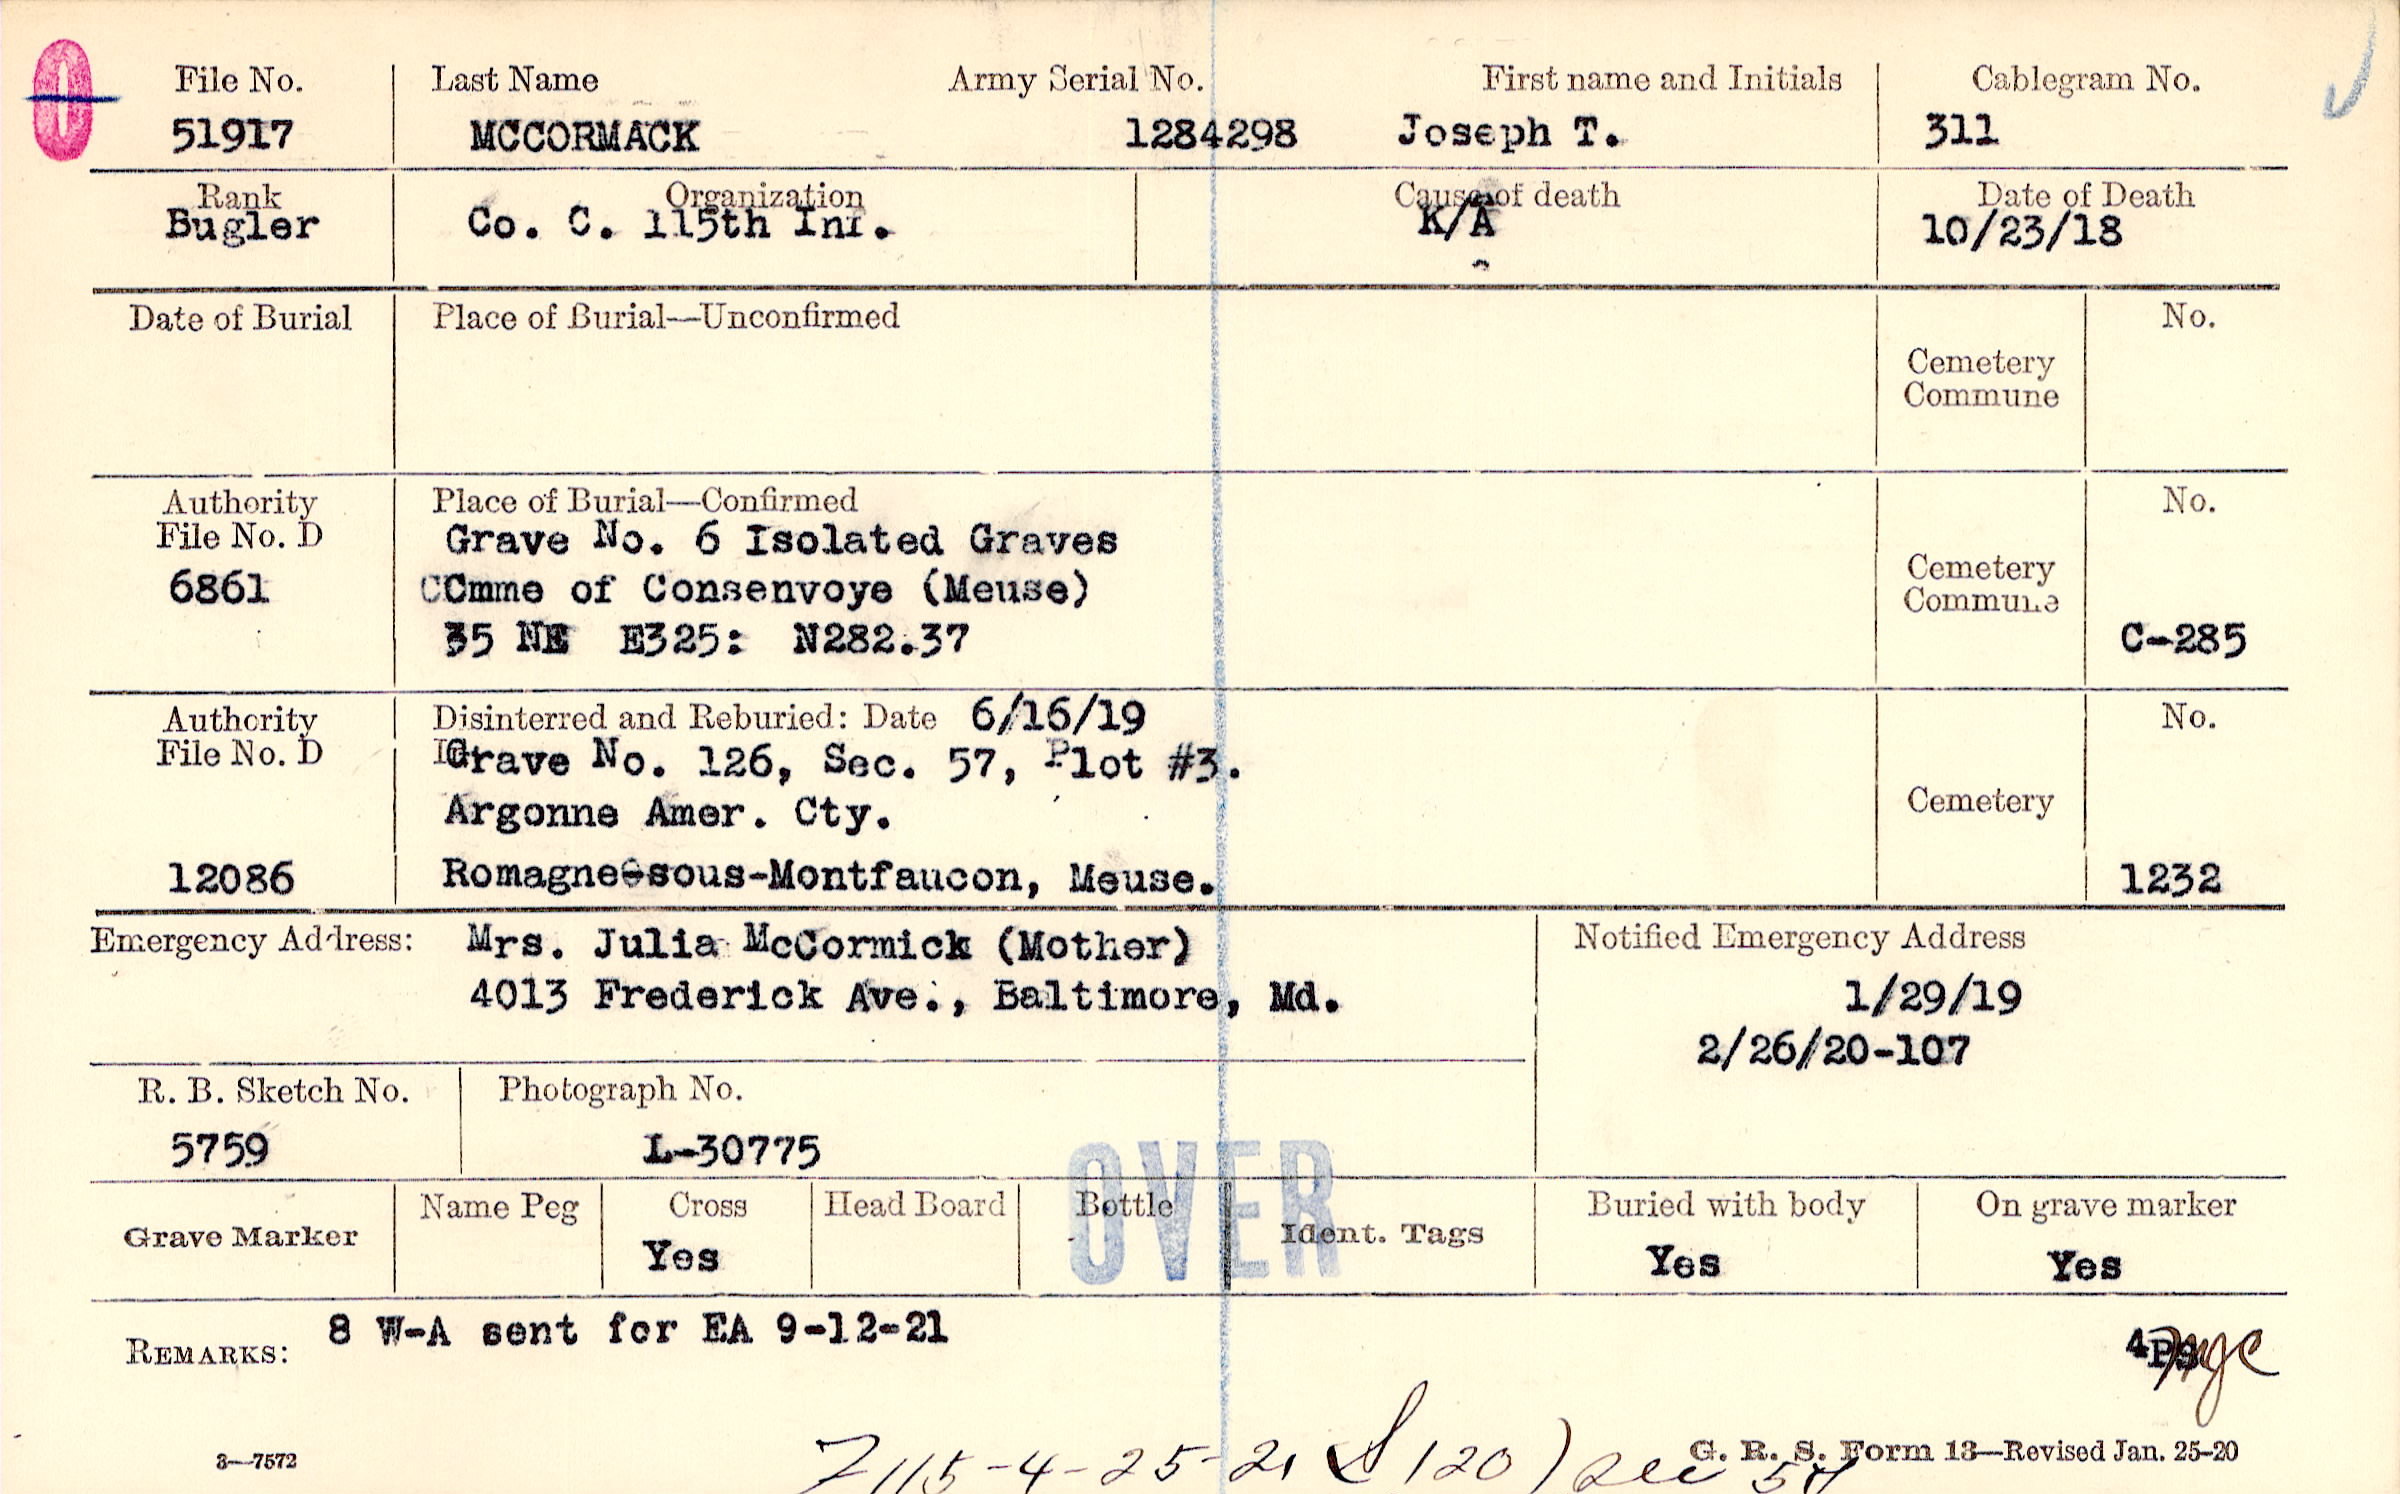 0
File No. Last Name Army Serial No. First name and Initials Cablegram No.
51917 MCCORMACK 1284298 Joseph T. 311
Rank Organization Cause of death Date of Death
Bugler Co. C. 115th Inf. K/A 10/23/18
Date of Burial Place of Burial—Unconfirmed No.
Cemetery
Commune
Authority Place of Burial—Confirmed No.
File No. D Grave No. 6 Isolated Graves
6861 CCmme of Consenvoye (Meuse) Cemetery
Commune
35 NE E325: N282.37 C-285
Authority Disinterred and Reburied: Date 6/16/19 No.
File No. D Grave No. 126, Sec. 57, Plot #3.
Argonne Amer. Cty. Cemetery
12086 Romagne-sous-Montfaucon, Meuse. 1232
Emergency Address: Mrs. Julia McCormick (Mother) Notified Emergency Address
4013 Frederick Ave., Baltimore, Md. 1/29/19
2/26/20-107
R. B. Sketch No. Photograph No.
5759 L-30775
OVER
Grave Marker Name Peg Cross Head Board Bottle Ident. Tags Buried with body On grave marker
Yes Yes Yes
REMARKS: 8 W-A sent for EA 9-12-21
115-4-25-21 120) Sec 57
3—7572 G. R. S. Form 13—Revised Jan. 25-20